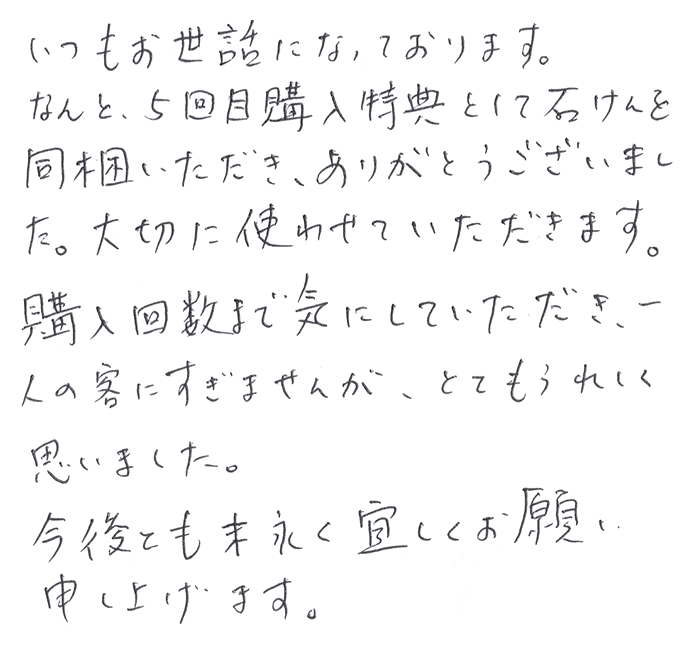 いつもお世話になっております。
なんと、5回目購入特典として石けんを
同梱いただき、ありがとうございまし
た。大切に使わせていただきます。
購入回数まで気にしていただき、一
人の客にすぎませんが、とてもうれしく
思いました。
今後とも末永く宜しくお願い
申し上げます。